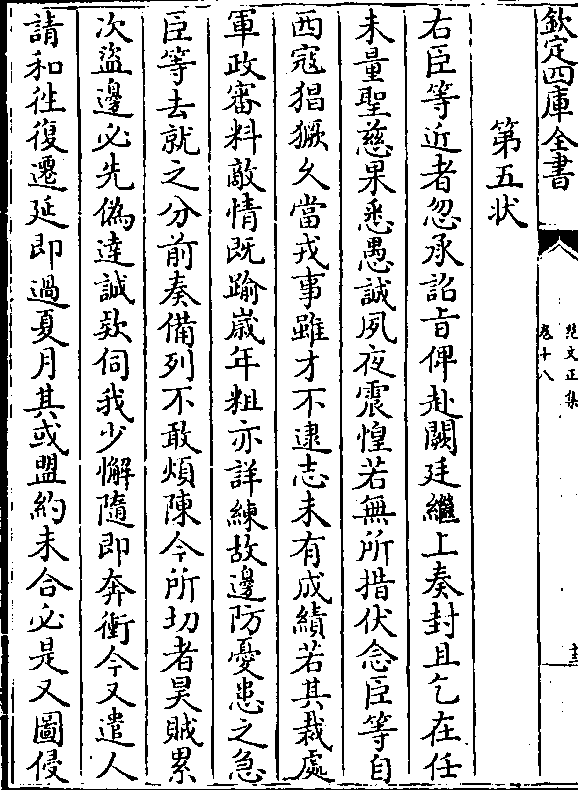 欽定四庫全書
范文正集
卷十八
第五狀
右臣等近者忽承詔旨俾赴闕廷繼上奏封且乞在任
未量聖慈果悉愚誠夙夜震惶若無所措伏念臣等自
西寇猖獗久當戎事雖才不逮志未有成績若其裁處
軍政審料敵情既踰嵗年粗亦詳練故邊防憂患之急
臣等去就之分前奏備列不敢煩陳今所切者昊賊累
次盜邊必先偽達誠欵伺我少懈隨即奔衝今又遣人
請和徃復遷延即過夏月其或盟約未合必是又圖侵